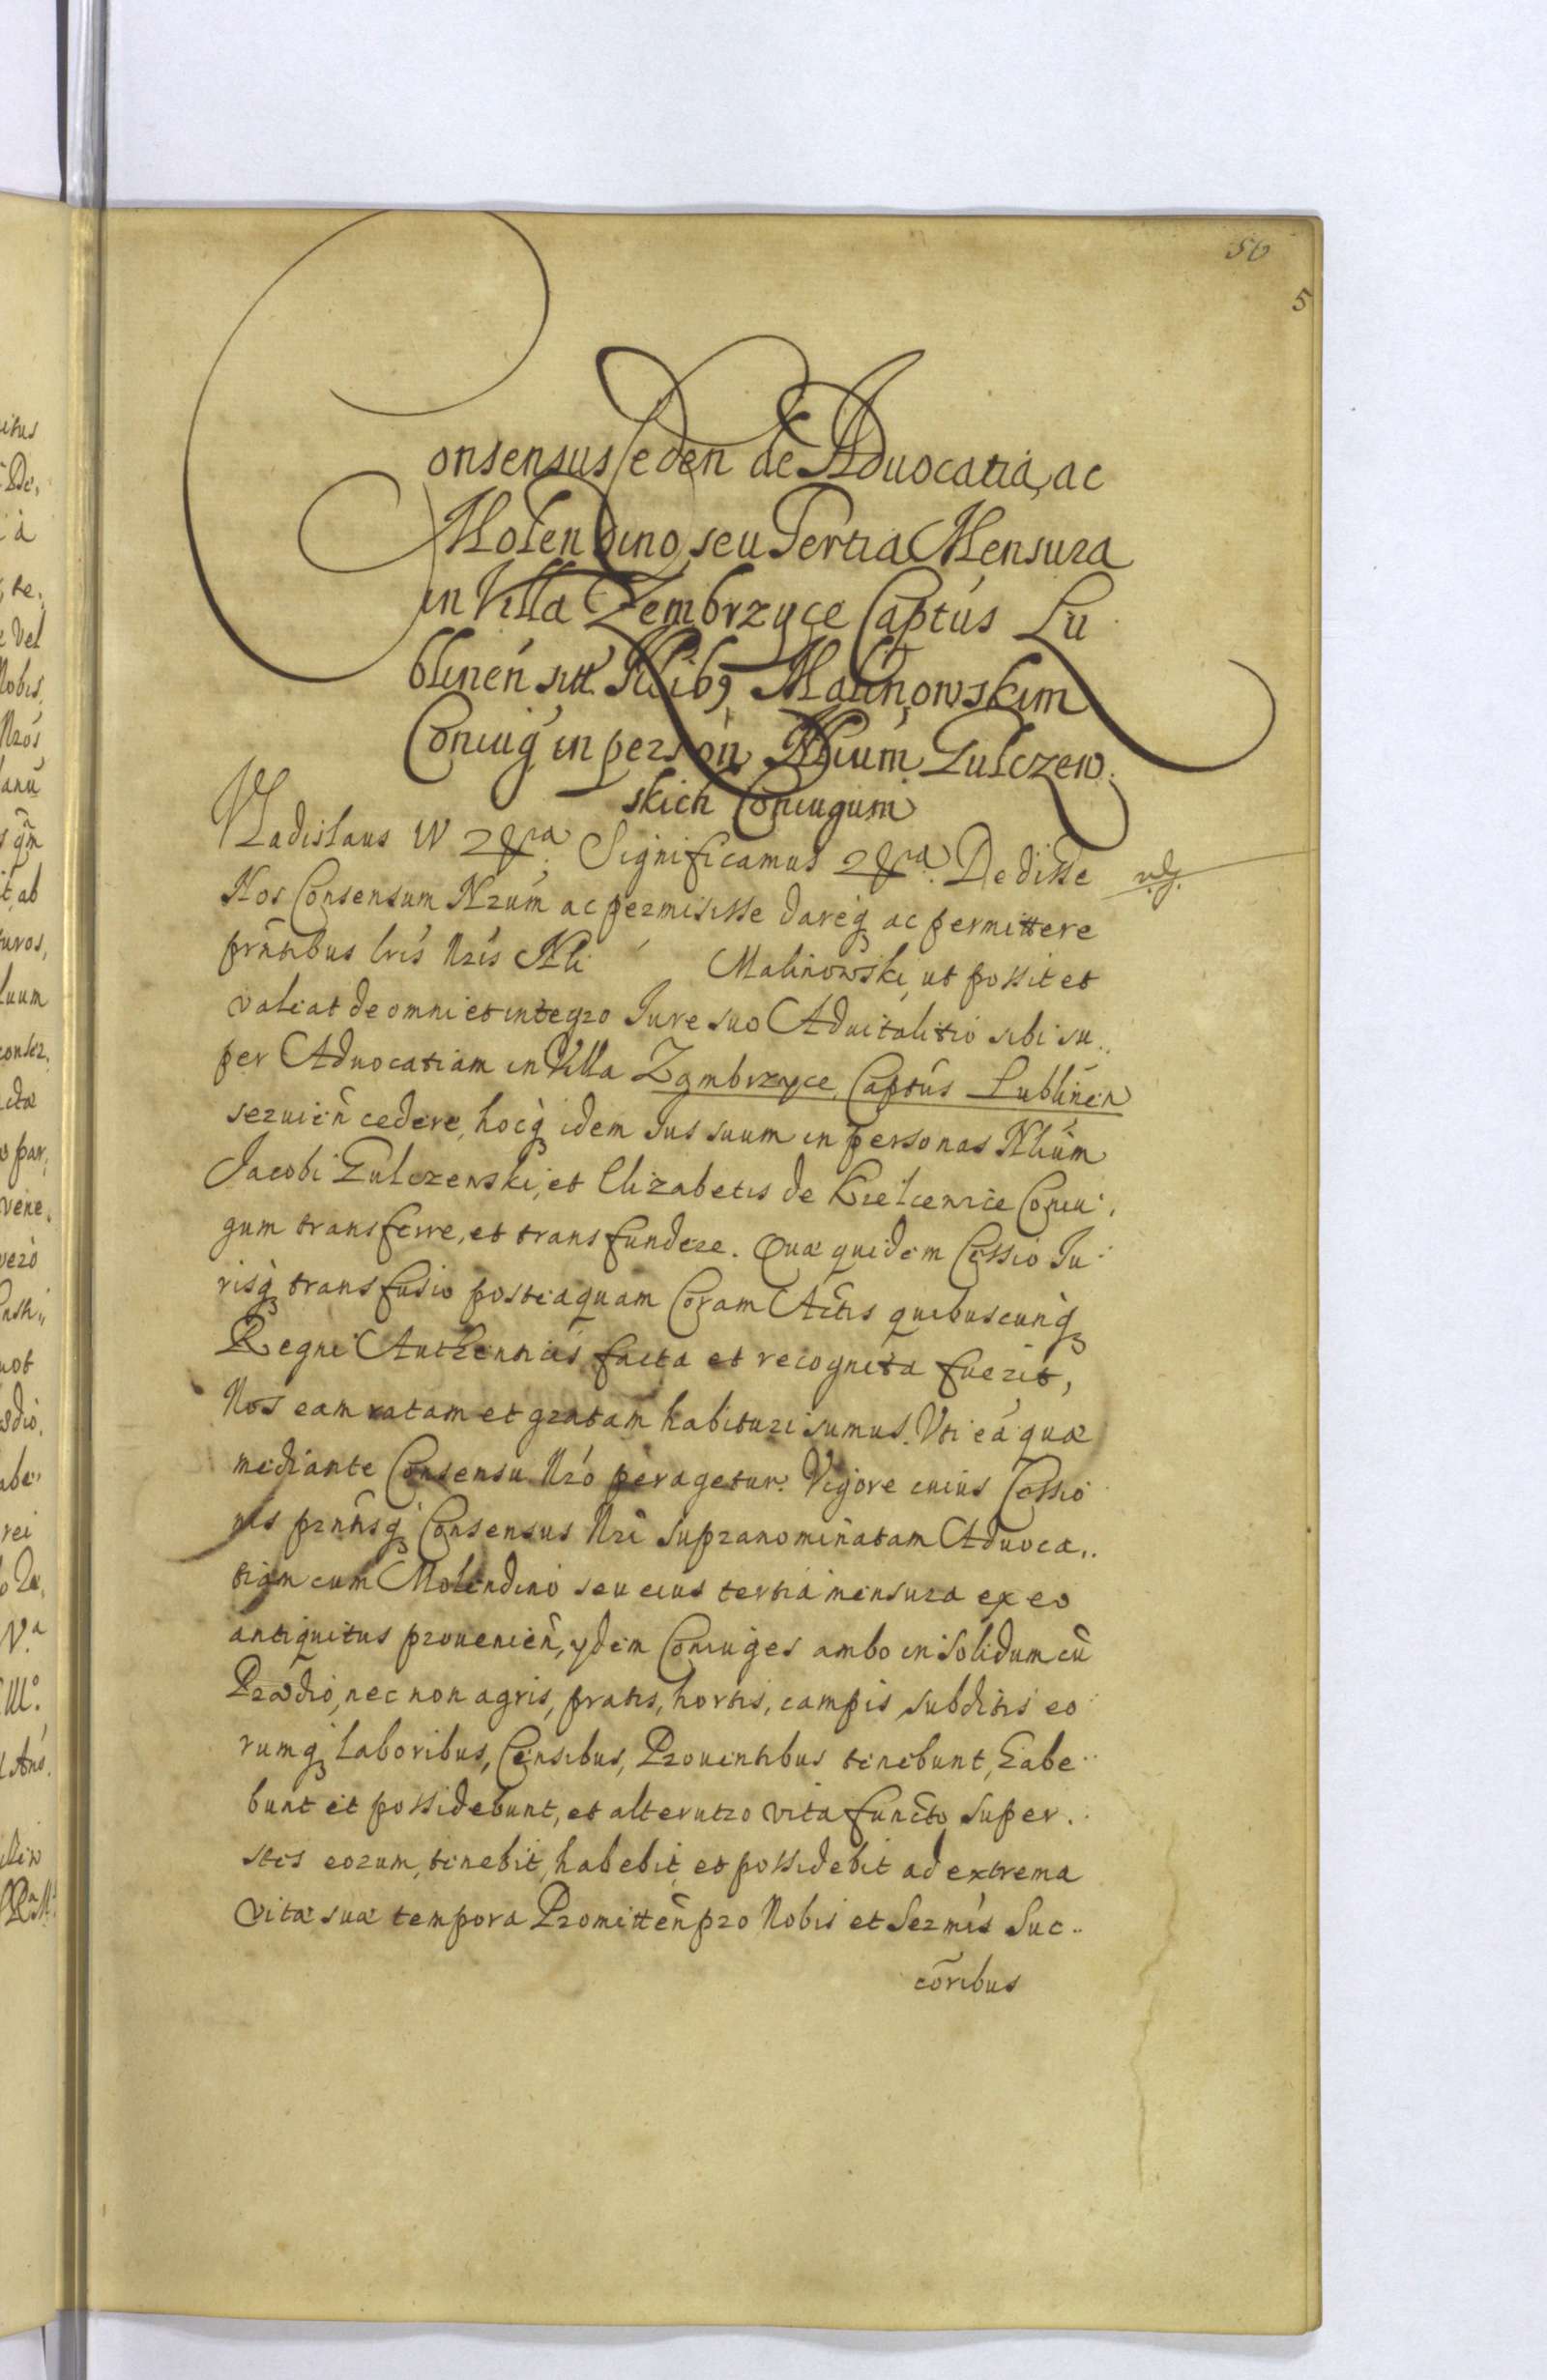 50
5
Consensus ceden de Aduocatia, ac
Molendino seu Tertia Mensura
in Villa Zembrzyce Captús Lu
blinen sitt. Nlib9 Malinowskim
Coniug in person Nlium Zulczew
skich Coniugum
Vladislaus IV Significamus Dedisse
Nos Consensum Nrúm ac permisisse dareq ac permittere
prntibus lris Nris Nli Malinowski, ut possit et
valeat de omni et integro Jure suo Aduitalitio sibi su..
per Aduocatiam in Villa Zęmbrzyce Captús Lublinen
seruien cedere, hocq idem Jus suum in personas Nlium
Jacobi Zulczewski, et Elizabetis de Kielcewice Coniu.
gum transferre, et transfundere. Quæ quidem Cessio Ju
risq transfusio posteaquam Coram Actis quibuscunq
Regni Authenticis facta et recognita fuerit,
Nos eam ratam et gratam habituri sumus. Vti ea quæ
mediante Consensu Nró peragetur. Vigore cuius Cessio
nis prntisq Consensus Nri supranominatam Aduoca..
tiam cum Molendino seu eius tertia mensura ex eo
antiquitus prouenien, ydem Coniuges ambo in solidum cu
Prædio, nec non agris, pratis, hortis, campis subditis eo
rumq laboribus, Censibus, Prouentibus tenebunt, habe
bunt et possidebunt, et alterutro vita functo super.
stes eorum, tenebit, habebit et possidebit ad extrema
vitæ suæ tempora Promitten pro Nobis et Sermis Suc..
coribus